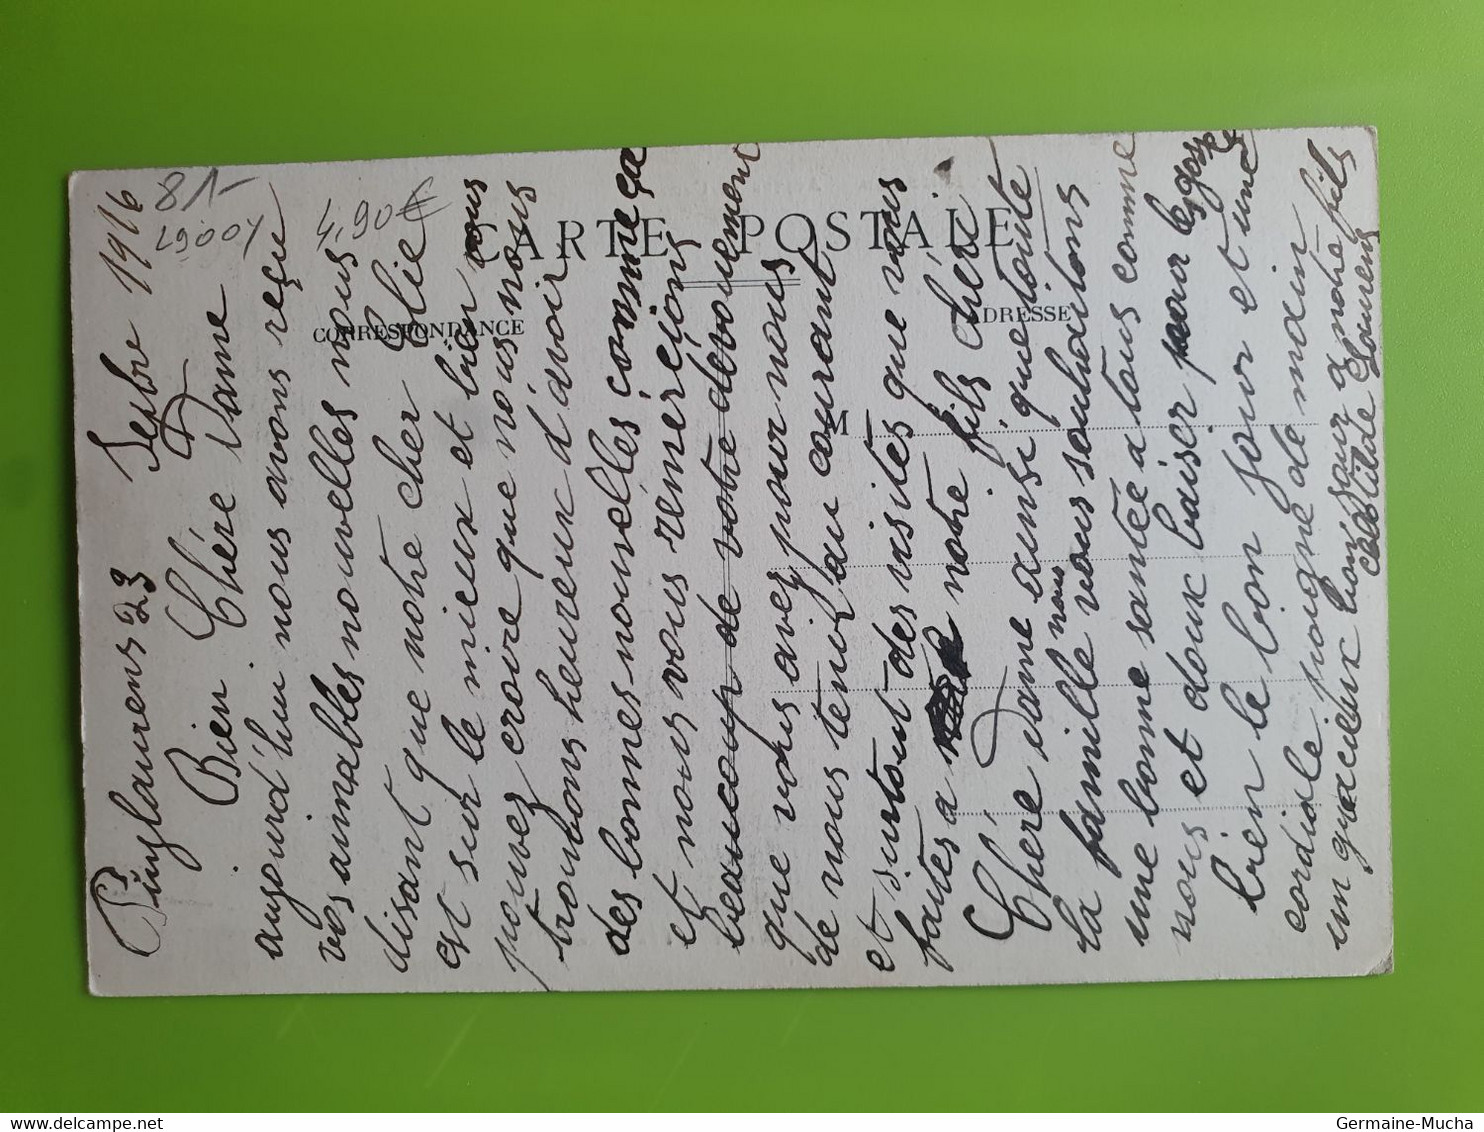 Puylaurens 23 Sebre 1916
Bien Chére Dame
aujourd'hui nous avons reçu
vos aimables nouvelles nous
disant que notre cher Elie
est sur le mieux et bien vous
pouvez croire que nous nous
trouvons heureux d'avoir
des bonnes nouvelles comme ça
et nous vous rémércions
beaucoup de votre dévouement
que vous avez pour nous
de nous tenir au courant
et surtout des visites que vous
faites a notre fils chéri
Chére Dame ainsi que toute
la famille nous vous souhaitons
une bonne santée a tous comme
nous et doux baiser pour le gosse
bien le bon jour et une
cordiale poigne de main
un gracieux baiser a notre fils
Clotilde Laurens
CARTE POSTALE
CORRESPONDANCE
ADRESSE
M
81-
29004
4,90€
Germaine-Mucha